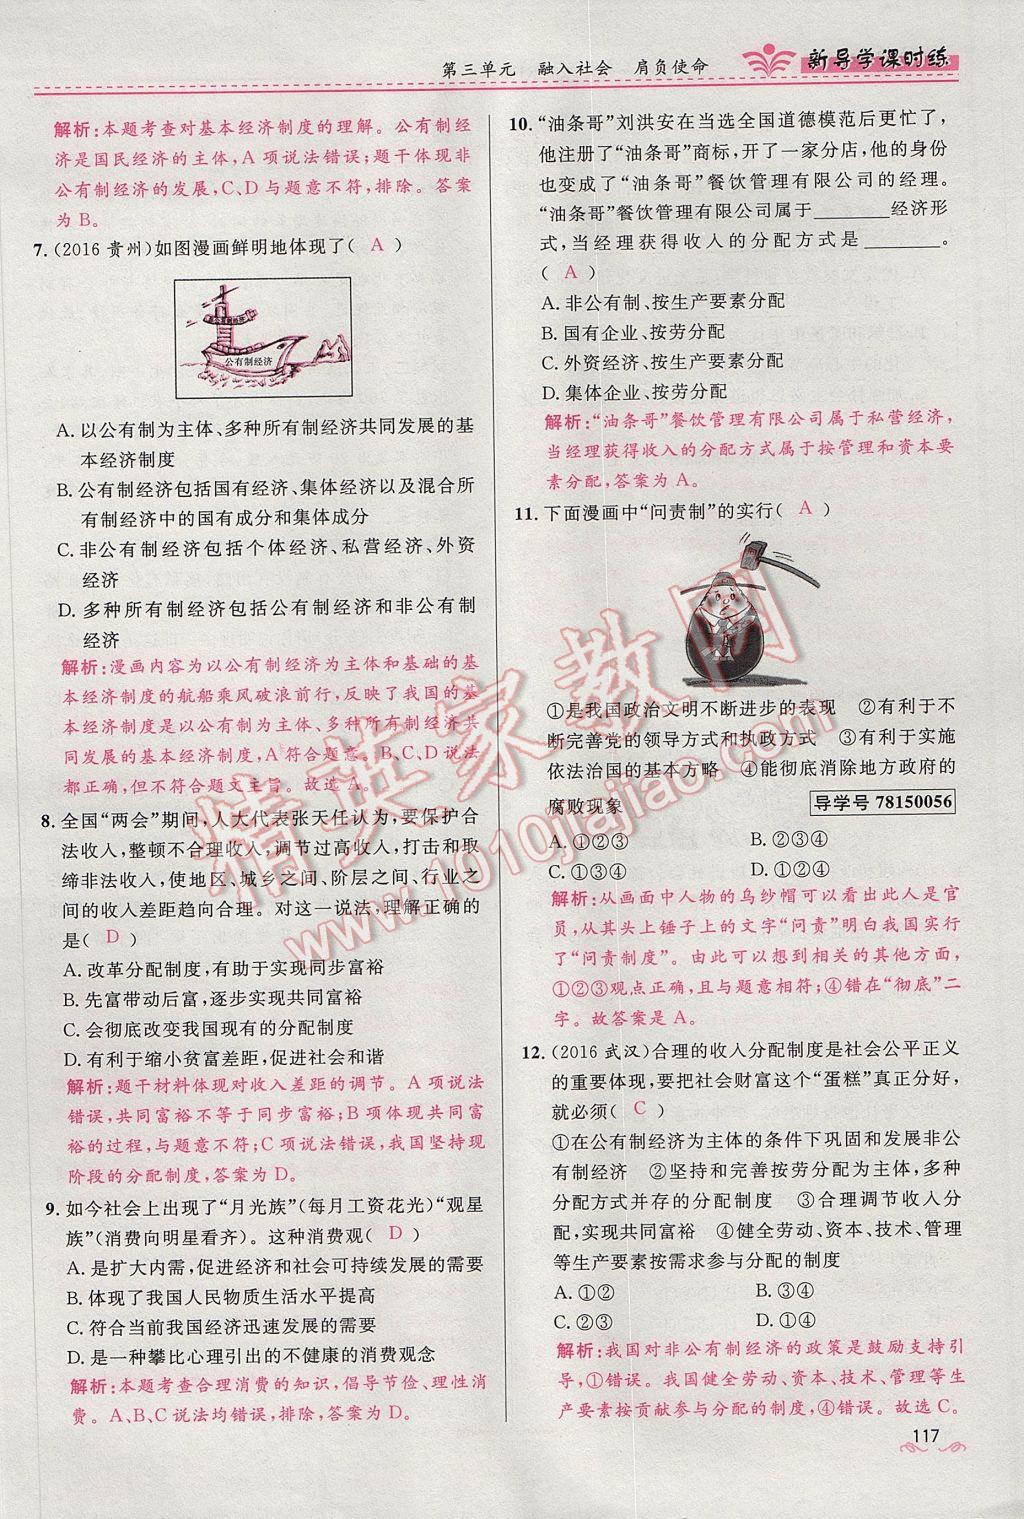 第三单元 融入社会 肩负使命
新导学课时练
解析:本题考查对基本经济制度的理解。公有制经
济是国民经济的主体,A项说法错误;题干体现非
公有制经济的发展,C、D与题意不符,排除。答案
为B。
7.(2016 贵州)如图漫画鲜明地体现了( A )
公有制经济
A. 以公有制为主体、多种所有制经济共同发展的基
本经济制度
B. 公有制经济包括国有经济、集体经济以及混合所
有制经济中的国有成分和集体成分
C. 非公有制经济包括个体经济、私营经济、外资
经济
D. 多种所有制经济包括公有制经济和非公有制
经济
解析:漫画内容为以公有制经济为主体和基础的基
本经济制度的航船乘风破浪前行,反映了我国的基
本经济制度是以公有制为主体、多种所有制经济共
同发展的基本经济制度,A符合题意。B、C、D说法
都正确,但不符合题文主旨。故选A。
8. 全国“两会”期间,人大代表张天任认为,要保护合
法收入,整顿不合理收入,调节过高收入,打击和取
缔非法收入,使地区、城乡之间、阶层之间、行业之
间的收入差距趋向合理。对这一说法,理解正确的
是( D )
A. 改革分配制度,有助于实现同步富裕
B. 先富带动后富,逐步实现共同富裕
C. 会彻底改变我国现有的分配制度
D. 有利于缩小贫富差距,促进社会和谐
解析:题干材料体现对收入差距的调节。A项说法
错误,共同富裕不等于同步富裕;B项体现共同富
裕的过程,与题意不符;C项说法错误,我国坚持现
阶段的分配制度,答案为D。
9. 如今社会上出现了“月光族”(每月工资花光)“观星
族”(消费向明星看齐)。这种消费观( D )
A. 是扩大内需,促进经济和社会可持续发展的需要
B. 体现了我国人民物质生活水平提高
C. 符合当前我国经济迅速发展的需要
D. 是一种攀比心理引出的不健康的消费观念
解析:本题考查合理消费的知识,倡导节俭、理性消
费。A、B、C说法均错误,排除,答案为D。
10. “油条哥”刘洪安在当选全国道德模范后更忙了,
他注册了“油条哥”商标,开了一家分店,他的身份
也变成了“油条哥”餐饮管理有限公司的经理。
“油条哥”餐饮管理有限公司属于________经济形
式,当经理获得收入的分配方式是________。
( A )
A. 非公有制、按生产要素分配
B. 国有企业、按劳分配
C. 外资经济、按生产要素分配
D. 集体企业、按劳分配
解析:“油条哥”餐饮管理有限公司属于私营经济,
当经理获得收入的分配方式属于按管理和资本要
素分配,答案为A。
11. 下面漫画中“问责制”的实行( A )
①是我国政治文明不断进步的表现 ②有利于不
断完善党的领导方式和执政方式 ③有利于实施
依法治国的基本方略 ④能彻底消除地方政府的
腐败现象 导学号 78150056
A. ①②③ B. ②③④
C. ①③④ D. ①②④
解析:从画面中人物的乌纱帽可以看出此人是官
员,从其头上锤子上的文字“问责”明白我国实行
了“问责制度”。由此可以想到相关的其他方面,
①②③观点正确,且与题意相符;④错在“彻底”二
字。故答案是A。
12. (2016 武汉)合理的收入分配制度是社会公平正义
的重要体现,要把社会财富这个“蛋糕”真正分好,
就必须( C )
①在公有制经济为主体的条件下巩固和发展非公
有制经济 ②坚持和完善按劳分配为主体、多种
分配方式并存的分配制度 ③合理调节收入分
配,实现共同富裕 ④健全劳动、资本、技术、管理
等生产要素按需求参与分配的制度
A. ①② B. ③④
C. ②③ D. ①④
解析:我国对非公有制经济的政策是鼓励支持引
导,①错误。我国健全劳动、资本、技术、管理等生
产要素按贡献参与分配的制度,④错误。故选C。
117
精英家教网
www.1010jiajiao.com